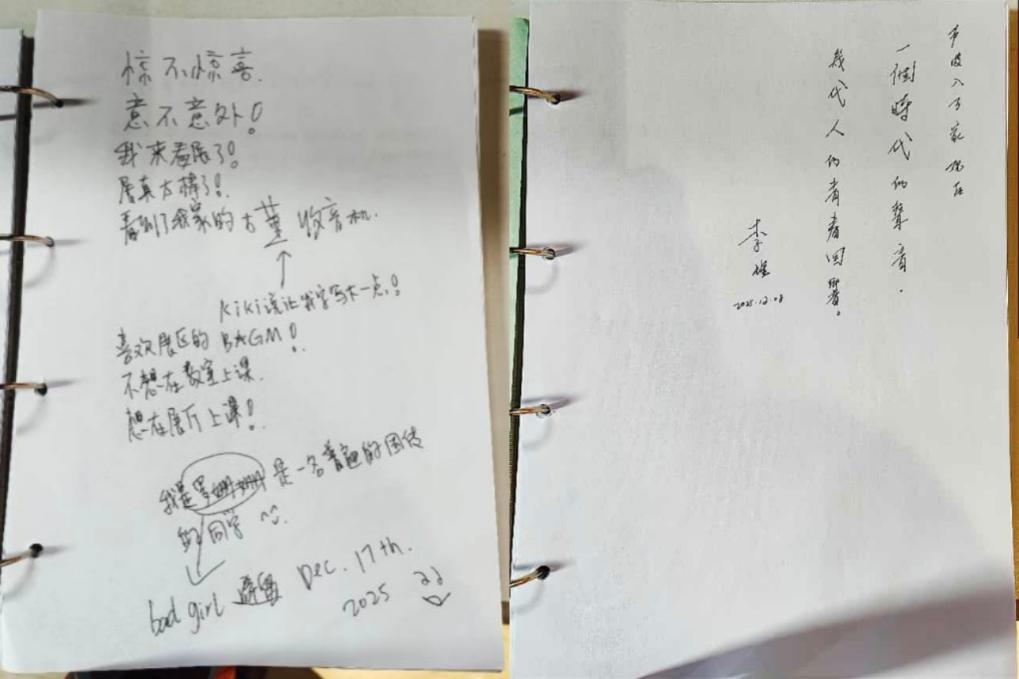 惊不惊喜.
意不意外!
我来看展了!
展真太棒了!.
看到了我家的古董收音机.
kiki说让我字写大一点!
喜欢展区的 BAGM!
不想在教室上课.
想在展厅上课!
我是罗 是一名普通的国传
的同学 ^^.
bad girl
Dec. 17th.
2025
声波入了家
一個時代的聲音.
幾代人的青春回響。
李
2025.12.08